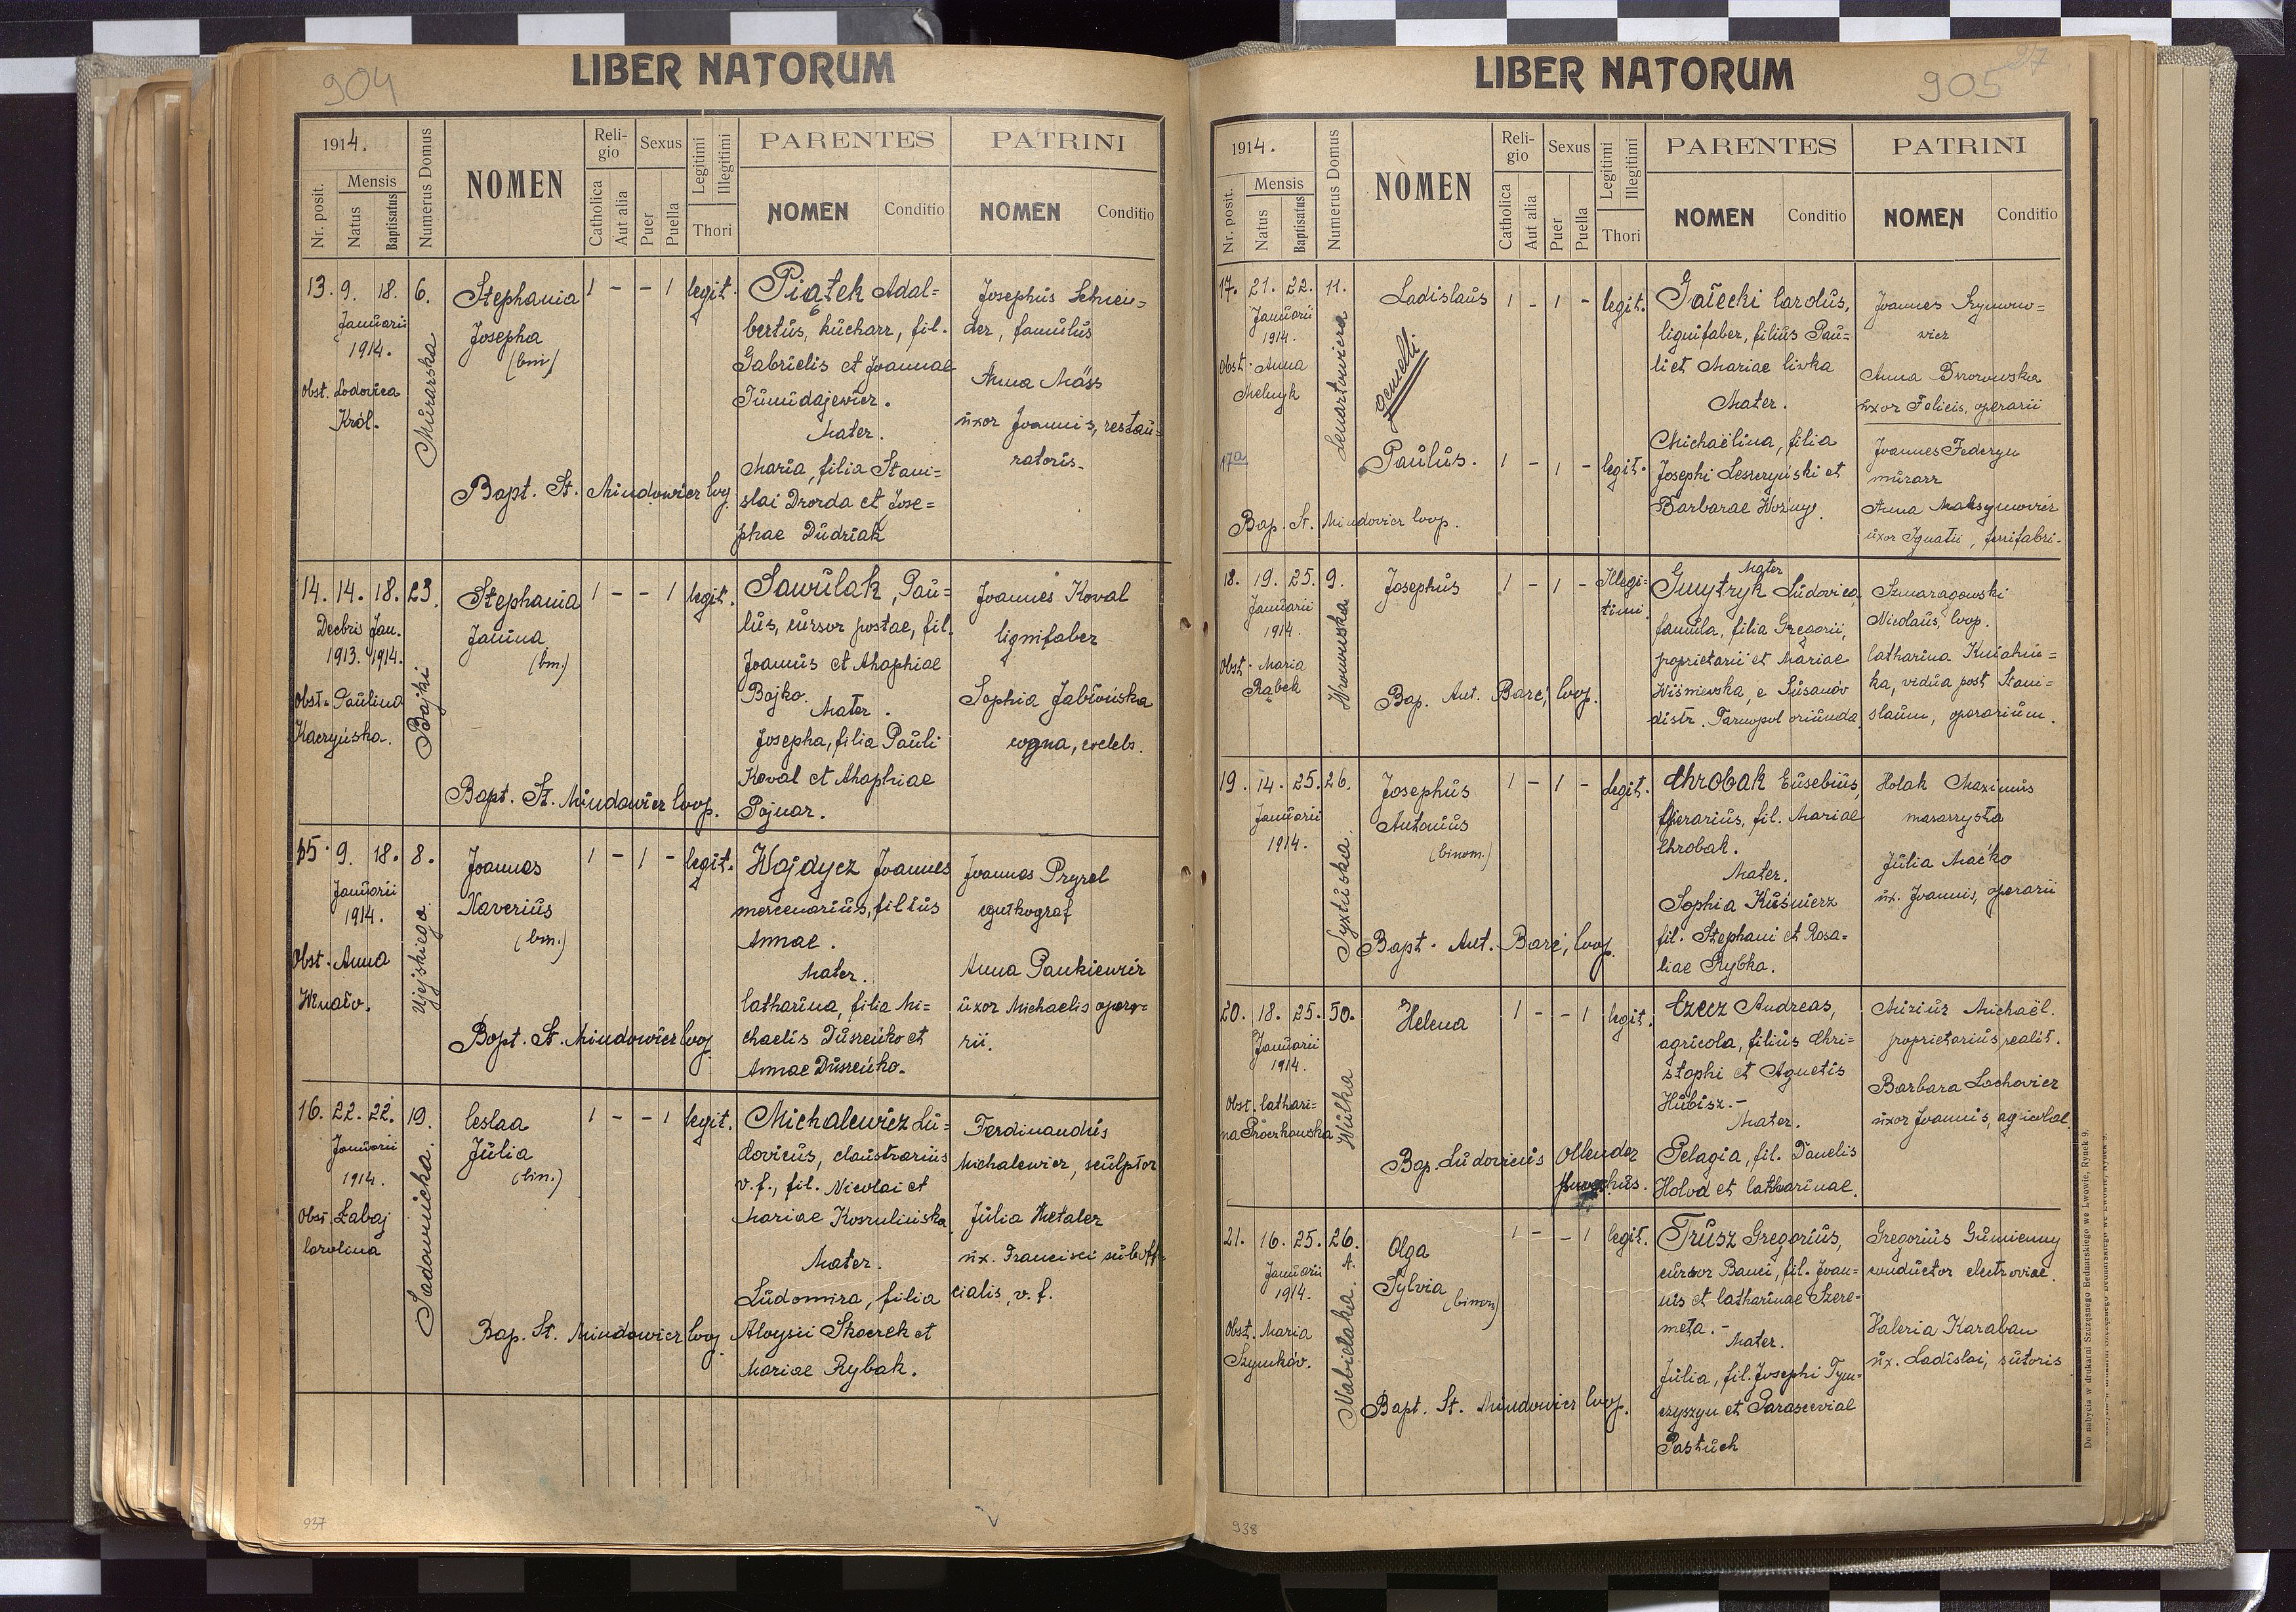 904
LIBER NATORUM
1914.
Nr. posit.
Mensis
Natus
Baptisatus
Numerus Domus
NOMEN
Reli-
gio
Catholica
Aut alia
Sexus
Puer
Puella
Legitimi
Illegitimi
Thori
PARENTES
NOMEN
Conditio
PATRINI
NOMEN
Conditio
13. 9. 18. 6.
Januarii
1914.
Obst. Lodovica
Król.
Murarska
Stephania
Josepha
(bin)
1 - - 1 legit.
Bapt. St. Mindowicz Coop.
Piątek Adal-
bertus, kucharz, fil.
Gabrielis et Joannae
Mater.
Maria, filia Stani-
slai Drozda et Jose-
phae Dudziak
Josephus Schnei-
der, famulus
Anna Mäss
uxor Joannis, restau-
ratoris.
14. 14. 18. 23.
Decbris Jan.
1913. 1914.
Obst. Paulina
Kaczyńska.
Bajki
Stephania
Janina
(bin.)
1 - - 1 legit.
Bapt. St. Mindowicz Coop.
Sawulak, Pau-
lus, cursor postae, fil.
Joannis et Ahaphiae
Bojko.
Mater.
Josepha, filia Pauli
Koval et Ahaphiae
Pojnar.
Joannes Koval
lignifaber
Sophia Jabłońska
cogna, coelebs.
15. 9. 18. 8.
Januarii
1914.
Obst. Anna
Ujejskiego.
Joannes
Xaverius
(bin.)
1 - 1 - legit.
Bapt. St. Mindowicz Coop.
Wajdycz Joannes
mercenarius, filius
Annae.
Mater.
Catharina, filia Mi-
chaelis Duszeńko et
Annae Duszeńko.
Joannes Pryzel
cynkograf
Anna Pankiewicz
uxor Michaelis opera-
rii.
16. 22. 22. 19.
Januarii
1914.
Obst. Łabaj
Carolina
Sadownicka.
Ceslaa
Julia
(bin.)
1 - - 1 legit.
Bap. St. Mindowicz Coop.
Michalewicz Lu-
dovicus, claustrarius
v. f., fil. Nicolai et
Mariae Kosrulińska
Mater.
Ludomira, filia
Aloysii Skoczek et
Mariae Rybak.
Ferdinandus
Michalewicz, sculptor
Julia Metaler
ux. Francisci suboffi-
cialis, v. f.
937
905
LIBER NATORUM
1914.
Nr. posit.
Mensis
Natus
Baptisatus
Numerus Domus
NOMEN
Reli-
gio
Catholica
Aut alia
Sexus
Puer
Puella
Legitimi
Illegitimi
Thori
PARENTES
NOMEN
Conditio
PATRINI
NOMEN
Conditio
17. 21. 22. 11.
Januarii
1914.
Obst. Anna
Melnyk
Lenartowicza
Ladislaus
Gemelli
1 - 1 - legit.
17a
Paulus.
1 - 1 - legit.
Bap. St. Mindowicz Coop.
Gałecki Carolus,
lignifaber, filius Pau-
li et Mariae Liwka
Mater.
Michaëlina, filia
Josephi Leszczyński et
Barbarae Woźny.
Joannes Szymono-
wicz
Anna Brzozowska
uxor Felicis, operarii
Joannes Federyn
murarz
Anna Maksymowicz
uxor Ignatii, ferrifabri.
18. 19. 25. 9.
Januarii
1914.
Obst. Maria
Rąbek
Wronowska
Josephus
1 - 1 - Illegi-
timi
Bap. Ant. Barć, Coop.
Mater
Gmytryk Ludovica
famula, filia Gregorii,
proprietarii et Mariae
Wiśniewska, e Susanów
distr. Tarnopol oriunda
Szmaragowski
Nicolaus, Coop.
Catharina Kniahni-
ka, vidua post Stani-
slaum, operarium.
19. 14. 25. 26.
Januarii
1914.
Syxtuska.
Josephus
Antonius
(binom.)
1 - 1 - Legit.
Bapt. Ant. Barć, Coop.
Chrobak Eusebius,
operarius, fil. Mariae
Chrobak.
Mater.
Sophia Kuśnierz
fil. Stephani et Rosa-
liae Rybka.
Holak Maximus
masarzysta
Julia Maćko
ux. Joannis, operarii
20. 18. 25. 50.
Januarii
1914.
Obst. Cathari-
na Proczkowska
Wulka
Helena
1 - - 1 legit.
Bap. Ludovicus Ollender
parochus.
Czecz Andreas,
agricola, filius Chri-
stophi et Agnetis
Hubisz.-
Mater.
Pelagia, fil. Danelis
Holod et Catharinae.
Miziur Michaël.
proprietarius realit.
Barbara Lachowicz
uxor Joannis, agricolae.
21. 16. 25. 26.
A.
Januarii
1914.
Obst. Maria
Szymków.
Nabielaka.
Olga
Sylvia
(binom)
1 - - 1 legit.
Bapt. St. Mindowicz Coop.
Trusz Gregorius,
cursor Banci, fil. Joan-
nis et Catharinae Szere-
meta.-
Mater.
Julia, fil. Josephi Tym-
czyszyn et Parasceviae
Pastuch
Gregorius Gumienny
conductor electroviae.
Valeria Karaban
ux. Ladislai, sutoris
Do nabycia w drukarni Szczęsnego Bednarskiego we Lwowie, Rynek 9.
938